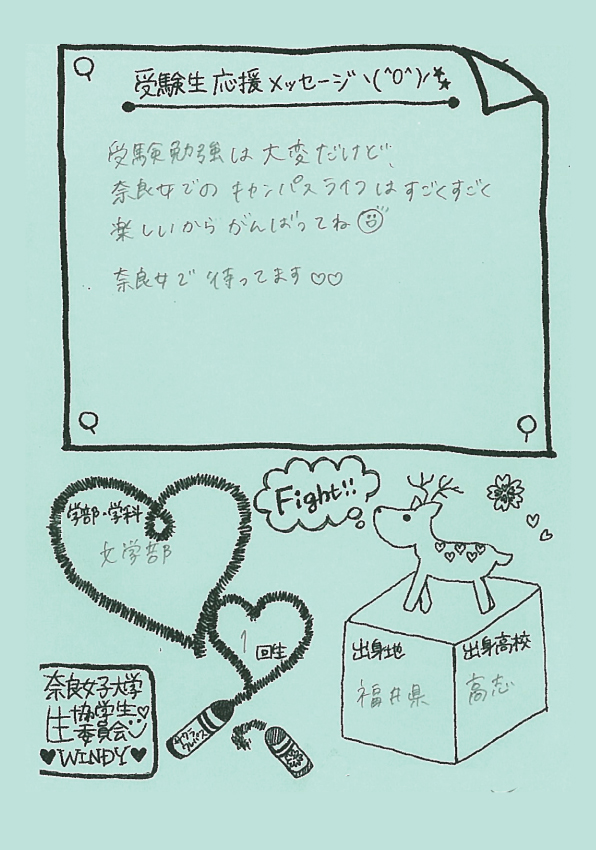 受験生応援メッセージヽ(^O^)ノ
受験勉強は大変だけど、
奈良女でのキャンパスライフはすごくすごく
楽しいからがんばってね
奈良女で待ってます♡♡
Fight!!
学部・学科
文学部
1回生
出身地
福井県
出身高校
高志
奈良女子大学
生協学生♡
委員会
♥WINDY♥
サクラ
クレパス